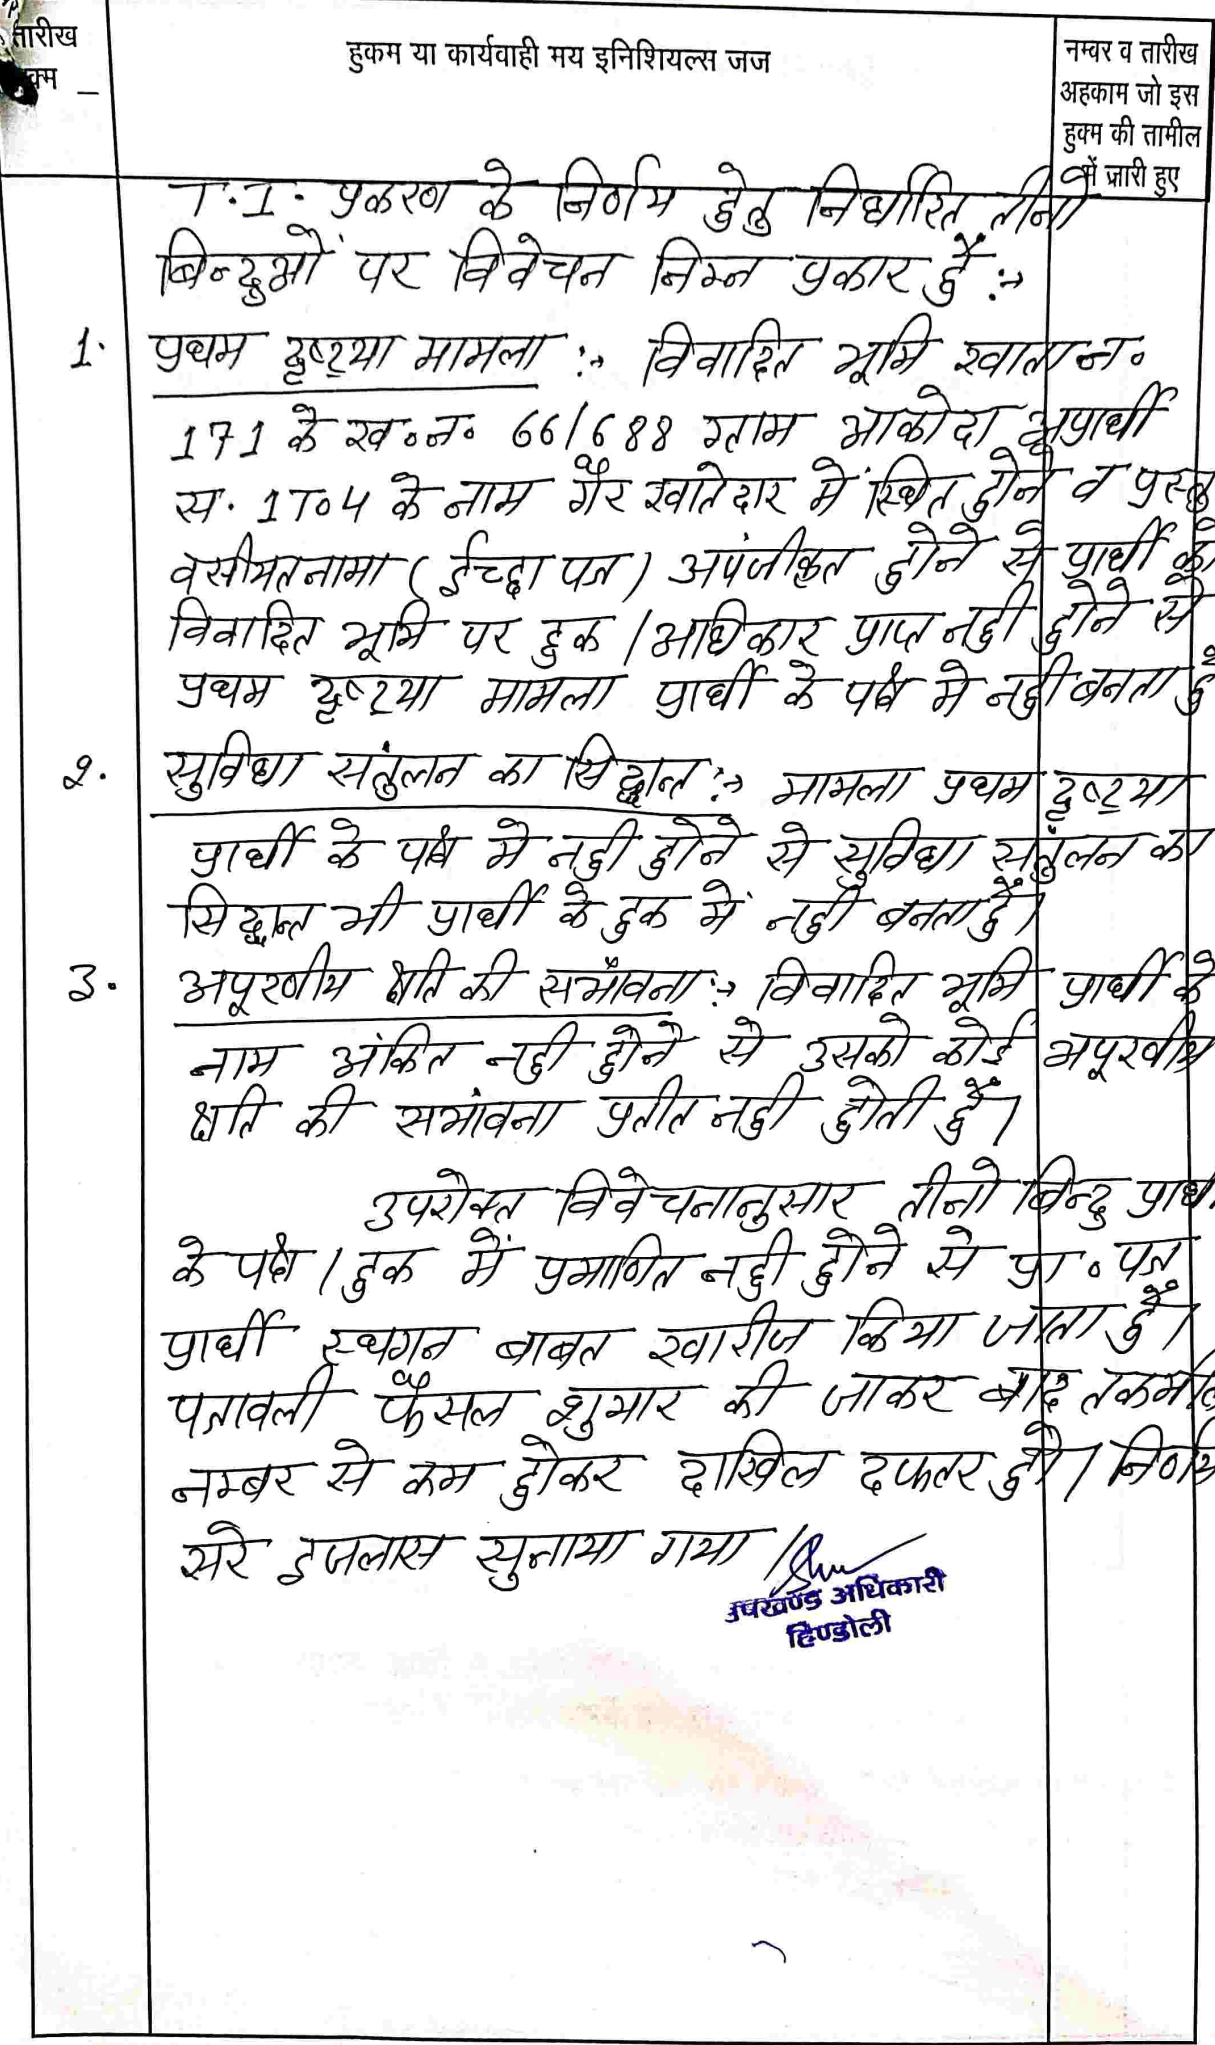 तारीख
हुकम या कार्यवाही मय इनिशियल्स जज
नम्वर व तारीख
अहकाम जो इस
हुक्म की तामील
में जारी हुए
T.I. प्रकरण के निर्णय हेतु निर्धारित तीनो
बिन्दुओं पर विवेचन निम्न प्रकार है :→
1. प्रथम दृष्ट्या मामला :→ विवादित भूमि खाता न॰
171 के ख॰न॰ 66/688 ग्राम आकोदा अप्रार्थी
स. 1 To 4 के नाम गैर खातेदार में स्थित होने व
वसीयतनामा (ईच्छा पत्र) अपंजीकृत होने से प्रार्थी को
विवादित भूमि पर हक / अधिकार प्राप्त नही होने से
प्रथम दृष्ट्या मामला प्रार्थी के पक्ष मे नही बनता है
2. सुविधा संतुलन का सिद्धान्त :→ मामला प्रथम दृष्ट्या
प्रार्थी के पक्ष मे नही होने से सुविधा संतुलन का
सिद्धान्त भी प्रार्थी के हक में नही बनता है।
3. अपूरणीय क्षति की सभांवना :→ विवादित भूमि प्रार्थी के
नाम अंकित नही होने से उसको कोई अपूरणीय
क्षति की सभांवना प्रतीत नही होती है।
उपरोक्त विवेचनानुसार तीनो बिन्दु प्रार्थी
के पक्ष / हक में प्रमाणित नही होने से प्रा॰ पत्र
प्रार्थी स्थगन बाबत खारीज किया जाता है।
पत्रावली फैसल शुमार की जाकर बाद
नम्बर से कम होकर दाखिल दफ्तर हो। निर्णय
सरे इजलास सुनाया गया।
उपखण्ड अधिकारी
हिण्डोली